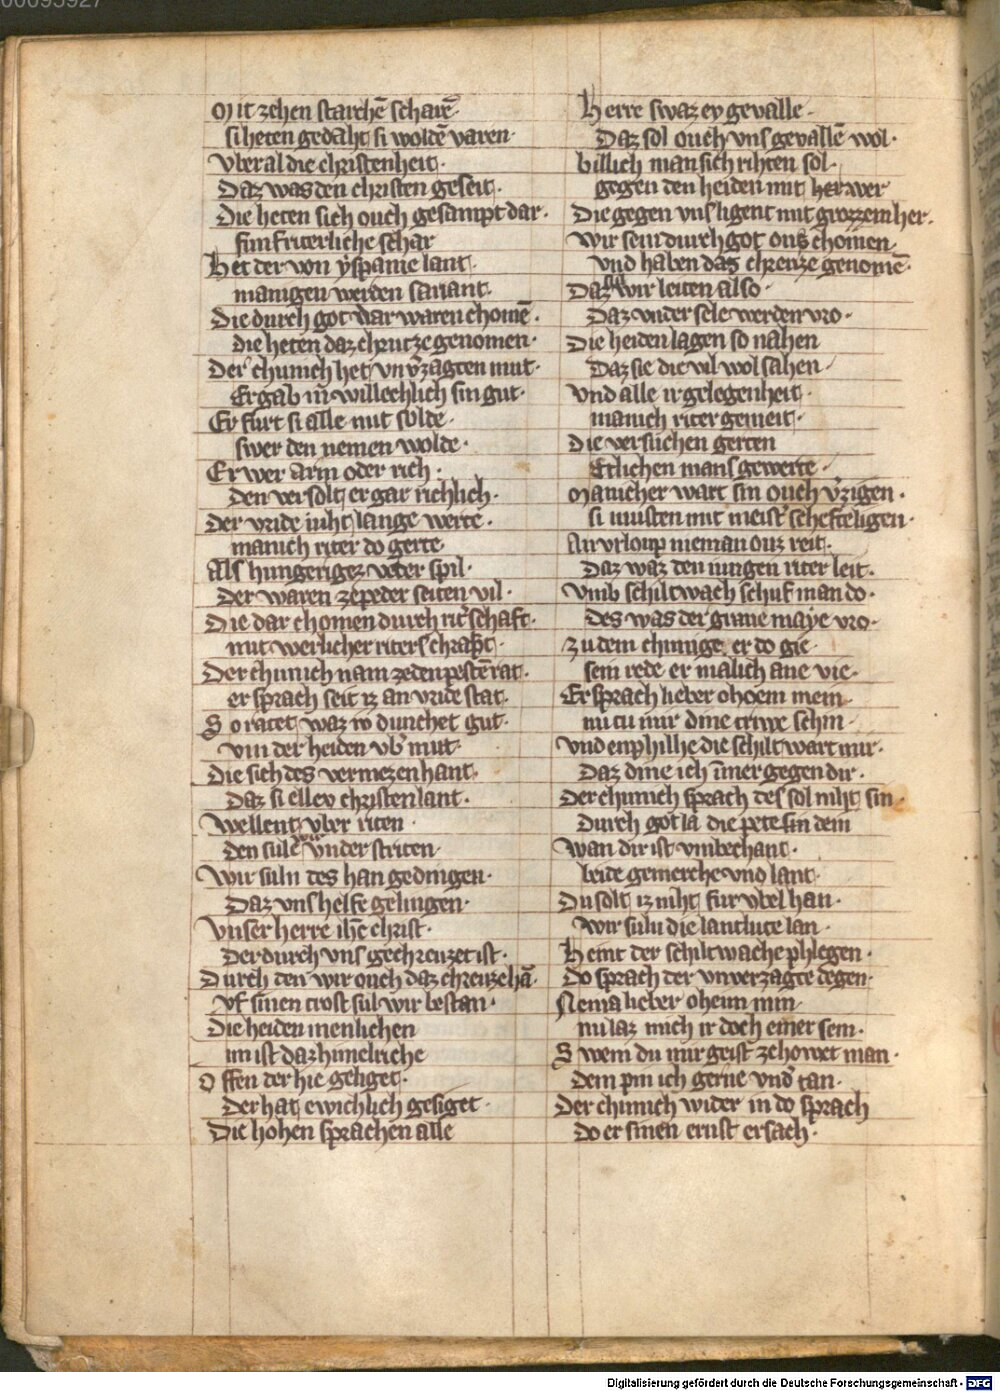 00095927
Mit zehen starchē scharē
si heten gedaht si woldē varen
Vber al die christenheit
Daz was den christen geseit
Die heten sich ouch gesampt dar
finf riterliche schar
Het der von yspanie lant
manigen werden sariant
Die durch got dar waren chomē
die heten daz chrutze genomen
Der chunich het vnv̄zagten mut
Er gab in willechlich sin gut
Er furt si alle mit solde
swer den nemen wolde
Er wer arm oder rich
Den versolt er gar richlich
Der vride niht lange werte
manich riter do gerte
Als hungerigez veder spil
Der waren zepeder seiten vil
Die dar chomen durch rit̄schaft
mit werlicher riters chraft
Der chunich nam ze den pestē rat
er sprach seit iz an vride stat
So ratet waz iv dunchet gut
vm der heiden vb̄mut
Die sich des vermezen hant
Daz si ellev christen lant
Wellent vber riten
den sulē wir vnder striten
Wir suln des han gedingen
Daz vns helfe gelingen
Vnser herre ih̄c christ
Der durch vns gechreuzet ist
Durch den wir ouch daz chreuze hā
vf sinen trost sul wir bestan
Die heiden menlichen
im ist daz himelriche
Offen der hie geliget
Der hat ewichlich gesiget
Die hohen sprachen alle
Herre swaz ev gevalle
Daz sol ouch vns gevallē wol
billich man sich rihten sol
gegen den heiden mit her wer
Die gegen vns ligent mit grozzem her
wir sein durch got ouz chomen
vnd haben das chreuze genomē
Daz sul wir leiten also
Daz vnder sele werden vro
Die heiden lagen so nahen
Daz sie die vil wol sahen
Vnd alle ir gelegenheit
manich riter gemeit
Die versuchen gerten
Etlichen mans gewerte
Manicher wart sin ouch v̄zigen
si musten mit meist̄ schefte ligen
An vrloup nieman ouz reit
Daz waz den iungen riter leit
Vmb schiltwach schuf man do
des was der graue maye vro
zu dem chunige er do gie
sein rede er malich ane vie
Er sprach lieber ohoem mein
nu tu mir dine triwe schin
Vnd enphilhe die schiltwart mir
Daz dine ich im̄er gegen dir
Der chunich sprach des sol niht sin
Durch got la die pete sin dein
Wan dir ist vnbechant
beide gemerche vnd lant
Du solt iz niht fur vbel han
wir suln die lantlute lan
Heint der schiltwache phlegen
Do sprach der vnverzagte degen
Nema lieber oheim min
nu laz mich ir doch einer sein
Swem du mir geist ze howet man
dem pin ich gerne vnd̄tan
Der chunich wider in do sprach
do er sinen ernst ersach
Digitalisierung gefördert durch die Deutsche Forschungsgemeinschaft - DFG